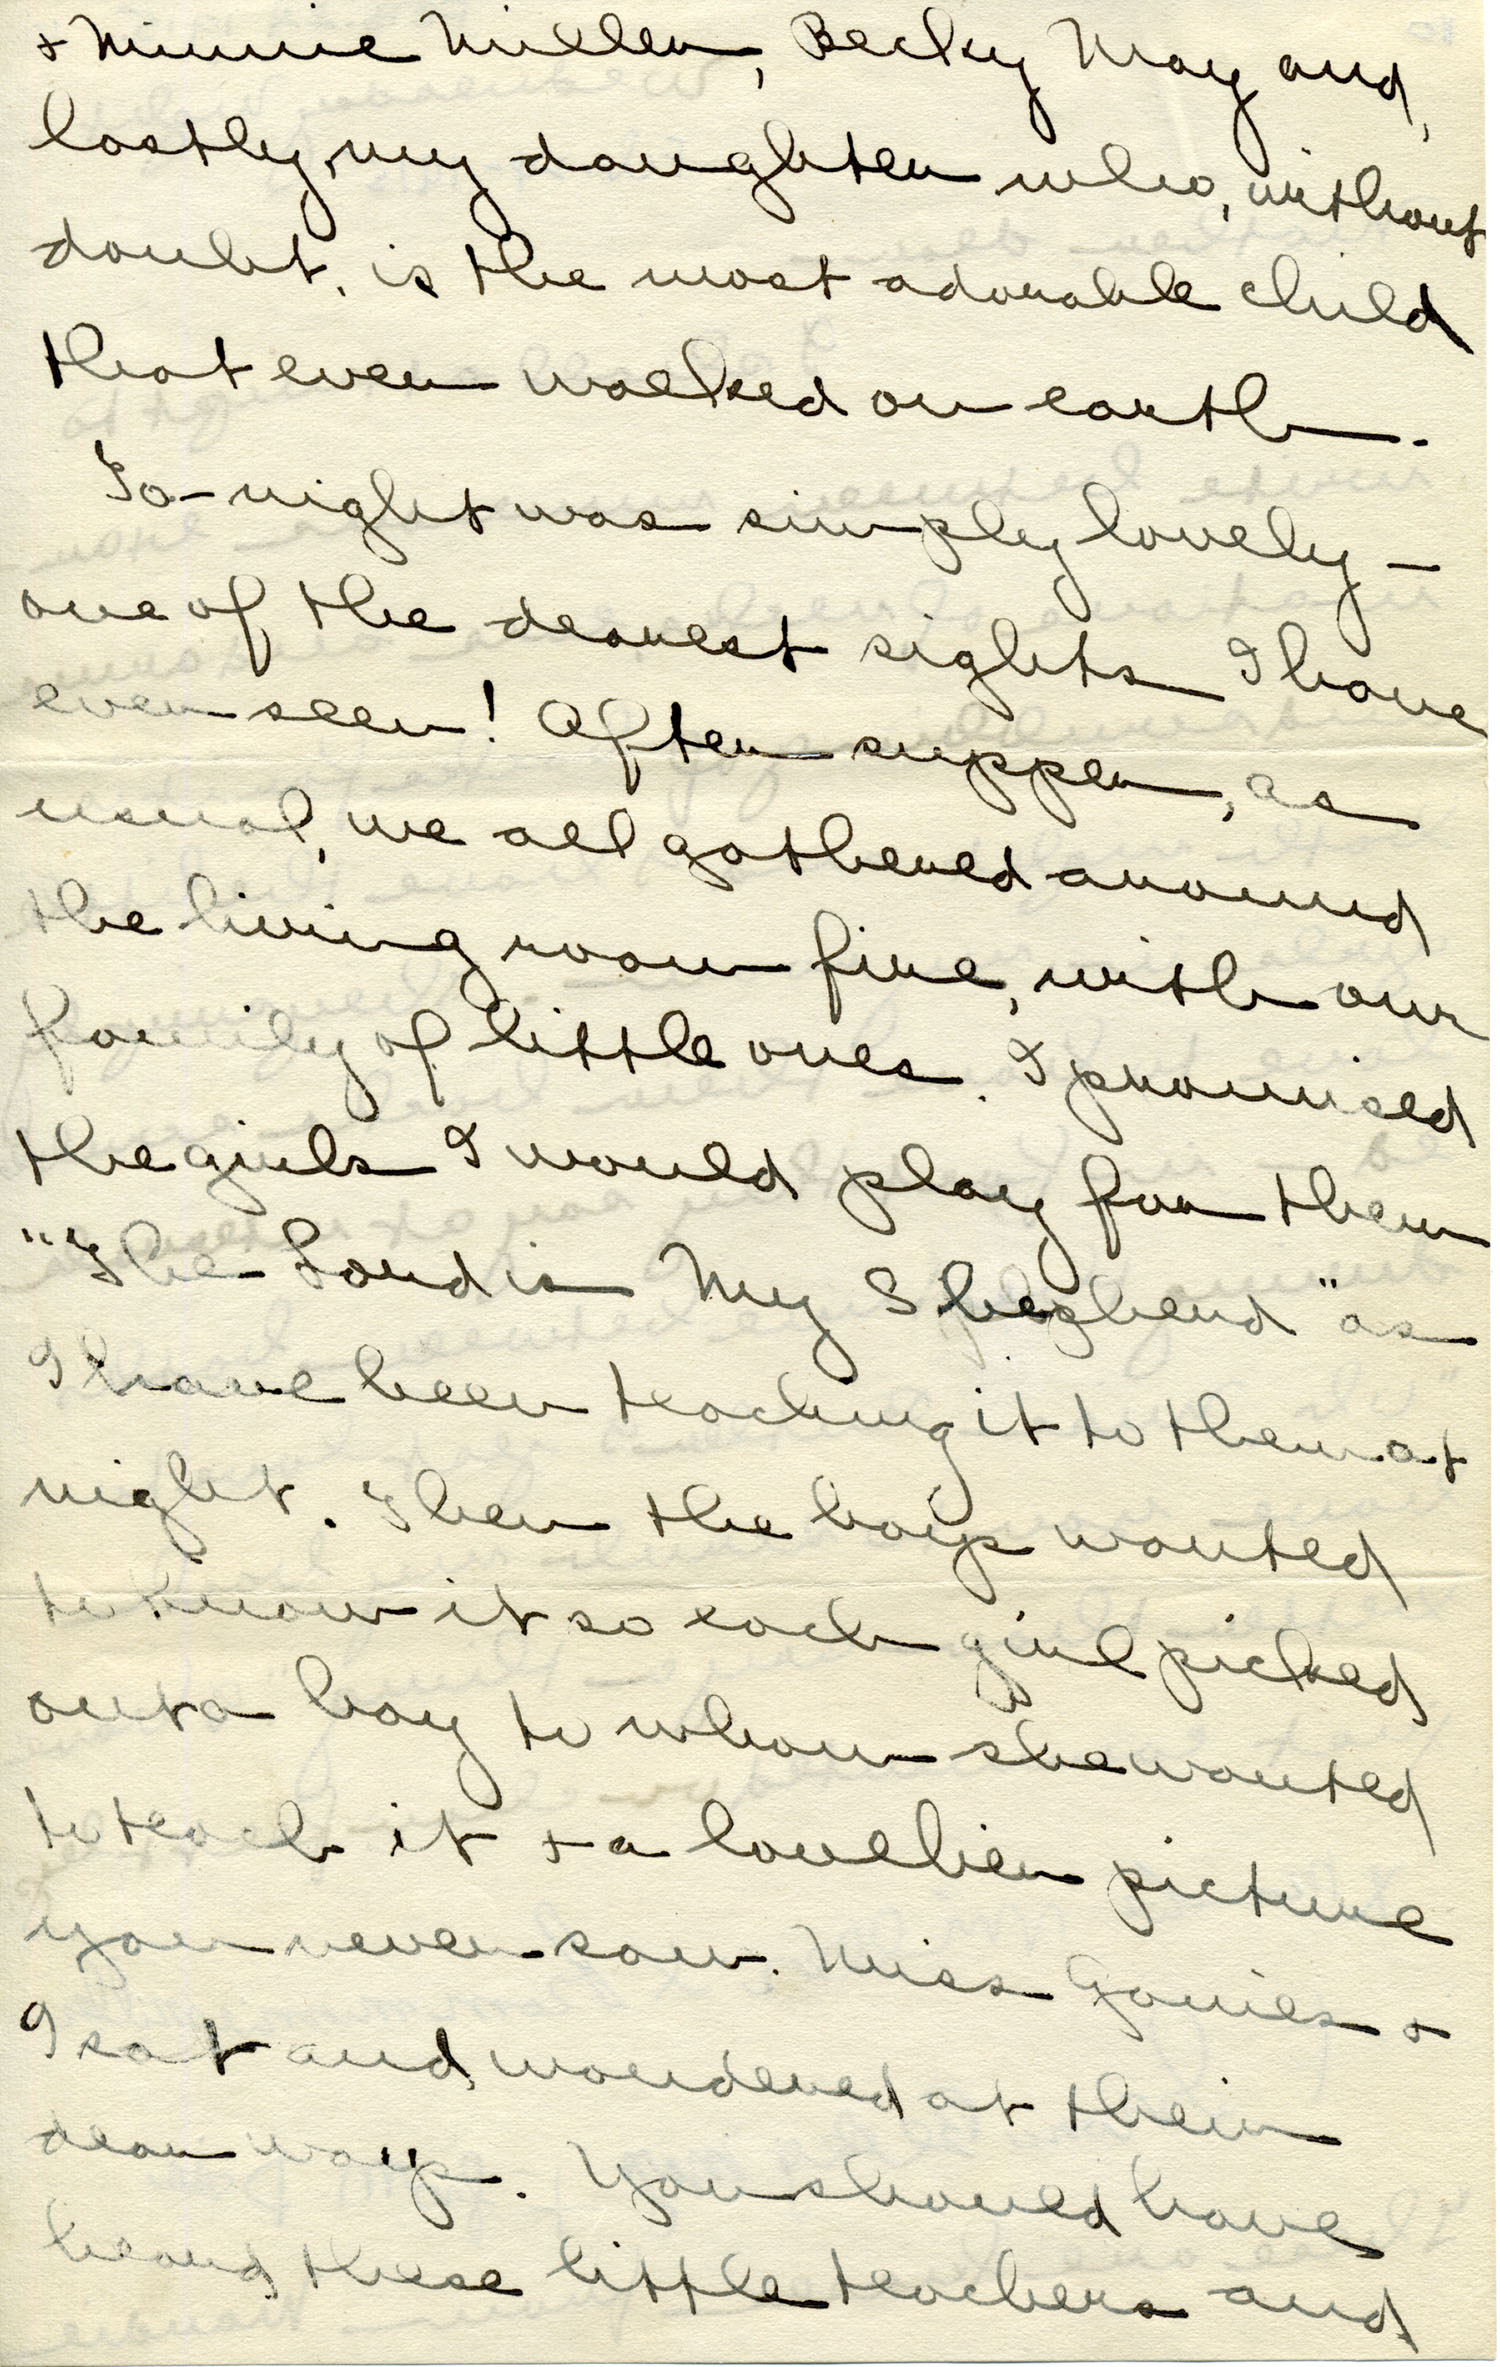 + Minnie Miller, Becky May and,
lastly, my daughter who, without
doubt, is the most adorable child
that ever walked on earth.
To-night was simply lovely —
one of the dearest sights I have
ever seen! After supper, as
usual, we all gathered around
the living room fire, with our
family of little ones. I promised
the girls I would play for them
"The Lord is My Shepherd" as
I have been teaching it to them at
night. Then the boys wanted
to know it so each girl picked
out a boy to whom she wanted
to teach it + a lovelier picture
you never saw. Miss Gaines +
I sat and wondered at their
dear ways. You should have
heard these little teachers and